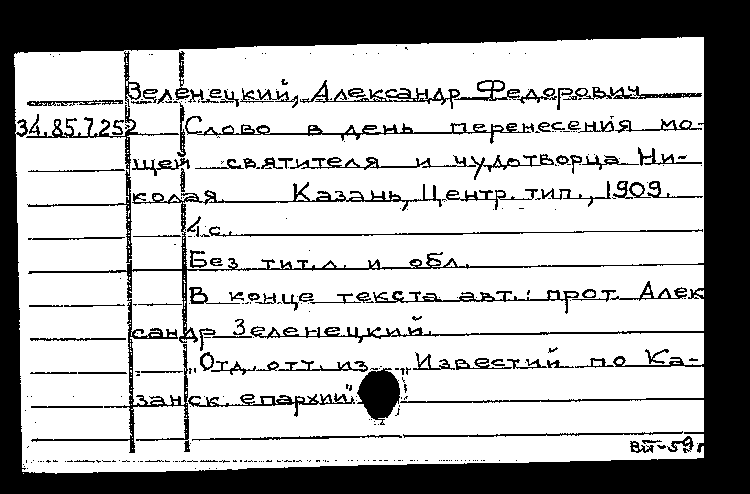 Зеленецкий, Александр Федорович
34.85.7.252 Слово в день перенесения мо-
щей святителя и чудотворца Ни-
колая. Казань, Центр. тип., 1909.
4 с.
Без тит. л. и обл.
В конце текста авт.: прот. Алек
сандр Зеленецкий.
„Отд. отт. из „Известий по Ка-
занск. епархии"
вт-59г